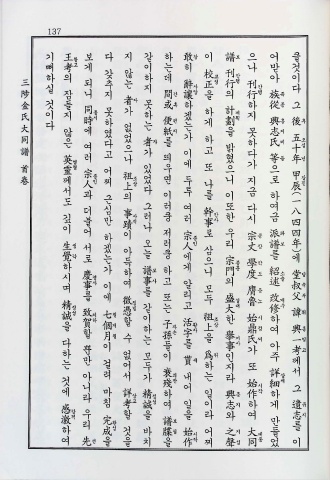 137
클것이다 그 後 五十年 甲辰(一八四四年)에 堂叔父 諱 興一考께서 그 遺志를 이
어받아 族從 興志氏 等으로 하여금 派譜를 紹述 改修하여 아주 詳細하게 만들었
으나 刊行하지 못하다가 지금 다시 宗人 學度 膺魯 始鼎氏가 또 始作하여 大同
譜 刊行의 計劃을 밝혔으니 이 또한 우리 宗門의 盛大한 擧事인지라 興志와 之聲
이 校正을 하게 하고 또 나를 幹事로 삼으니 모두 祖上을 爲하는 일이라 어찌
敢히 辭讓하겠는가 이에 두루 여러 宗人에게 알리고 活字를 貰내어 일을 始作
하는데 間或 便紙를 띄우면 이러쿵 저러쿵 하고 또는 子孫들이 衰殘하여 譜牒을
같이하지 못하는 者가 있었다 그러나 오늘 譜事를 같이하는 모두가 精誠을 바치
지 않는 者가 없었으나 祖上의 事蹟이 아득하여 徵憑할 수 없어서 詳考할 것을
다 갖추지 못하였다고 어찌 근심만 하겠는가 이에 七個月이 걸려 마침 完成을
보게 되니 同時에 여러 宗人과 더불어 서로 慶事를 致賀할 뿐만 아니라 우리 先
王考의 잠들지 않은 英靈께서도 깊이 生覺하시며 精誠을 다하는 것에 感激하여
기뻐하실 것이다
三陟金氏大同譜 首卷